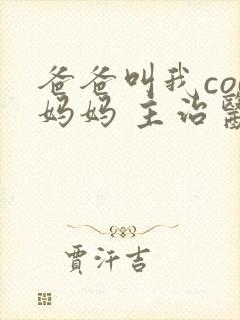 爸爸叫我co
妈妈 主治
賈汗吉